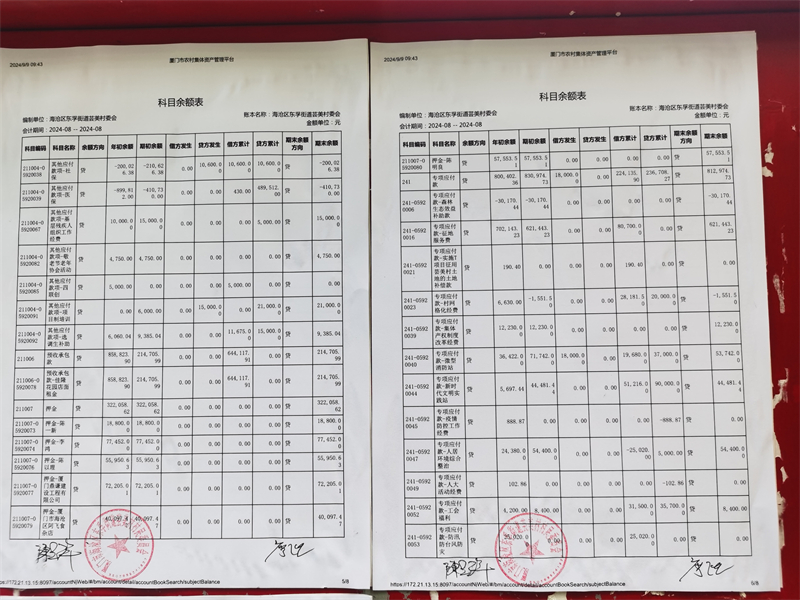 2024/9/9 09:43
厦门市农村集体资产管理平台
科目余额表
编制单位：海沧区东孚街道芸美村委会
账本名称：海沧区东孚街道芸美村委会
会计期间：2024-08 -- 2024-08
金额单位：元
科目编码 科目名称 余额方向 年初余额 期初余额 借方发生 贷方发生 借方累计 贷方累计 期末余额方向 期末余额
211004-05920038 其他应付款项-社保 贷 -200,026.38 -210,626.38 0.00 10,600.00 10,600.00 10,600.00 贷 -200,026.38
211004-05920039 其他应付款项-医保 贷 -899,812.00 -410,730.00 0.00 0.00 430.00 489,512.00 贷 -410,730.00
211004-05920067 其他应付款项-基层残疾人组织工作经费 贷 10,000.00 15,000.00 0.00 0.00 0.00 5,000.00 贷 15,000.00
211004-05920082 其他应付款项-敬老节老年协会活动 贷 4,750.00 4,750.00 0.00 0.00 0.00 0.00 贷 4,750.00
211004-05920085 其他应付款项-四联创 贷 5,000.00 0.00 0.00 0.00 5,000.00 0.00 贷 0.00
211004-05920091 其他应付款项-项目制培训 贷 0.00 6,000.00 0.00 15,000.00 0.00 21,000.00 贷 21,000.00
211004-05920092 其他应付款项-选调生补助 贷 6,060.04 9,385.04 0.00 0.00 11,675.00 15,000.00 贷 9,385.04
211006 预收承包款 贷 858,823.90 214,705.99 0.00 0.00 644,117.91 0.00 贷 214,705.99
211006-05920078 预收承包款-佳隆花园店面租金 贷 858,823.90 214,705.99 0.00 0.00 644,117.91 0.00 贷 214,705.99
211007 押金 贷 322,058.62 322,058.62 0.00 0.00 0.00 0.00 贷 322,058.62
211007-05920073 押金-陈一新 贷 18,800.00 18,800.00 0.00 0.00 0.00 0.00 贷 18,800.00
211007-05920074 押金-李鸿 贷 77,452.00 77,452.00 0.00 0.00 0.00 0.00 贷 77,452.00
211007-05920076 押金-陈以理 贷 55,950.63 55,950.63 0.00 0.00 0.00 0.00 贷 55,950.63
211007-05920077 押金-厦门鼎谦建设工程有限公司 贷 72,205.01 72,205.01 0.00 0.00 0.00 0.00 贷 72,205.01
211007-05920079 押金-厦门市海沧区阿飞食杂店 贷 40,097.47 40,097.47 0.00 0.00 0.00 0.00 贷 40,097.47
https://172.21.13.15:8097/accountN/Web/#/bm/account/detail/accountBookSearch/subjectBalance
5/8
2024/9/9 09:43
厦门市农村集体资产管理平台
科目余额表
编制单位：海沧区东孚街道芸美村委会
账本名称：海沧区东孚街道芸美村委会
会计期间：2024-08 -- 2024-08
金额单位：元
科目编码 科目名称 余额方向 年初余额 期初余额 借方发生 贷方发生 借方累计 贷方累计 期末余额方向 期末余额
211007-05920080 押金-陈明良 贷 57,553.51 57,553.51 0.00 0.00 0.00 0.00 贷 57,553.51
241 专项应付款 贷 800,402.36 830,974.73 18,000.00 0.00 224,135.90 236,708.27 贷 812,974.73
241-05920006 专项应付款-森林生态效益补助款 贷 -30,170.44 -30,170.44 0.00 0.00 0.00 0.00 贷 -30,170.44
241-05920016 专项应付款-征地服务费 贷 702,143.23 621,443.23 0.00 0.00 80,700.00 0.00 贷 621,443.23
241-05920021 专项应付款-实施T项目征用芸美村土地的土地补偿款 贷 190.40 0.00 0.00 0.00 190.40 0.00 贷 0.00
241-05920023 专项应付款-村网格化经费 贷 6,630.00 -1,551.50 0.00 0.00 28,181.50 20,000.00 贷 -1,551.50
241-05920039 专项应付款-集体产权制度改革经费 贷 12,230.00 12,230.00 0.00 0.00 0.00 0.00 贷 12,230.00
241-05920040 专项应付款-微型消防站 贷 36,422.00 71,742.00 18,000.00 0.00 19,680.00 37,000.00 贷 53,742.00
241-05920044 专项应付款-新时代文明实践站 贷 5,697.44 44,481.44 0.00 0.00 51,216.00 90,000.00 贷 44,481.44
241-05920045 专项应付款-疫情防控工作经费 贷 888.87 0.00 0.00 0.00 0.00 -888.87 贷 0.00
241-05920047 专项应付款-人居环境综合整治 贷 24,380.00 54,400.00 0.00 0.00 -25,020.00 5,000.00 贷 54,400.00
241-05920049 专项应付款-人大活动经费 贷 102.86 0.00 0.00 0.00 0.00 -102.86 贷 0.00
241-05920052 专项应付款-工会福利 贷 4,200.00 8,400.00 0.00 0.00 31,500.00 35,700.00 贷 8,400.00
241-05920053 专项应付款-防汛防台风防灾 贷 25,020.00 0.00 0.00 0.00 25,020.00 0.00 贷 0.00
https://172.21.13.15:8097/accountN/Web/#/bm/account/detail/accountBookSearch/subjectBalance
6/8